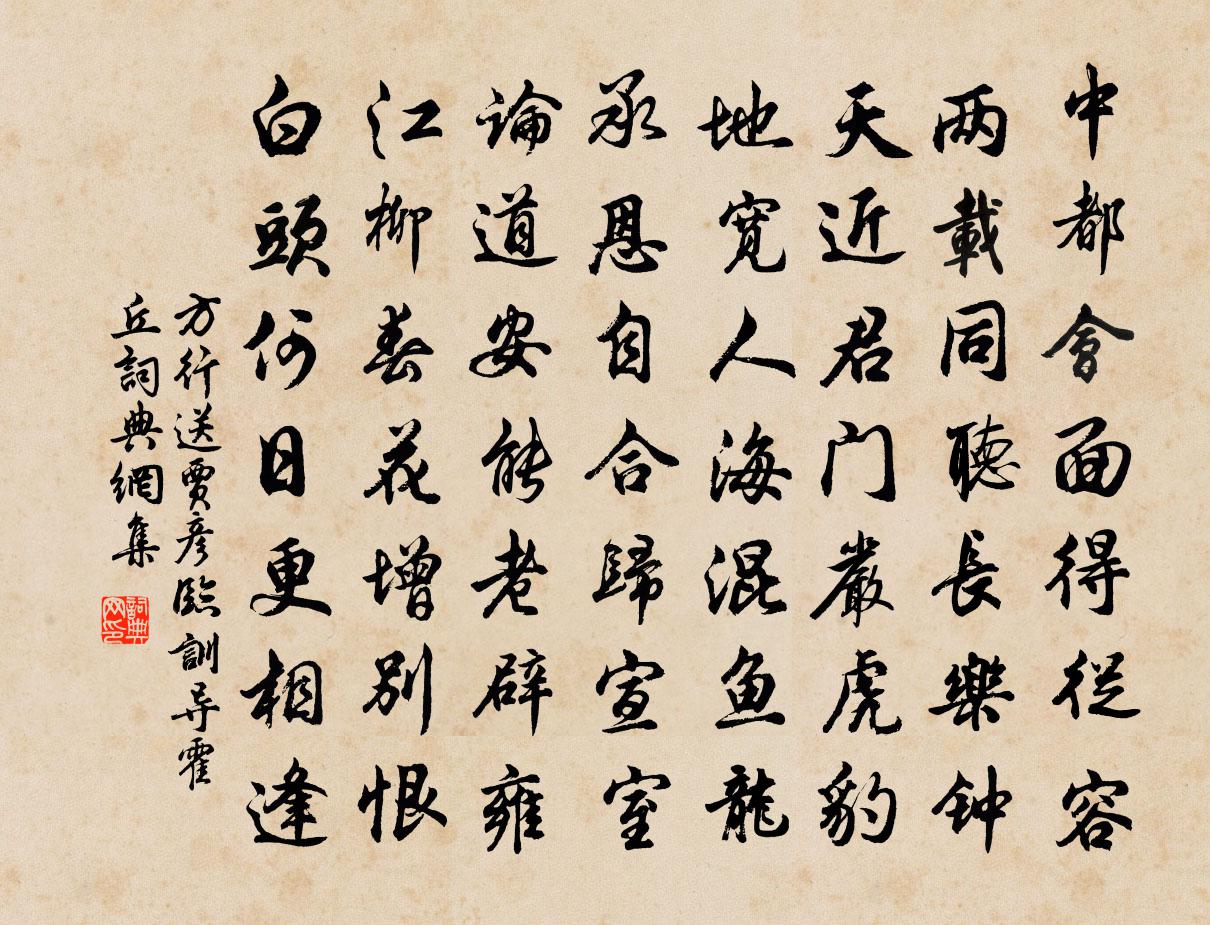 中都會面得從容
两載同聽長樂钟
天近君门嚴虎豹
地寬人海混鱼龍
承恩自合歸宣室
論道安能老辟雍
江柳春花增別恨
白頭何日更相逢
方行送賈彥臨訓导霍
丘詞典網集
詞典网印